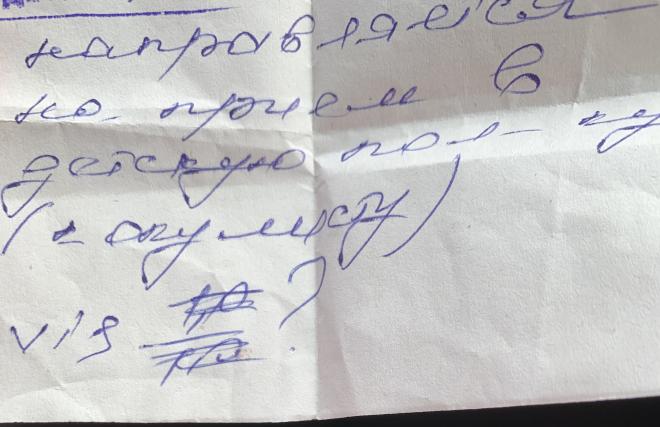 направляется
на прием в
детскую пол-ку
(к окулисту)
vis ?